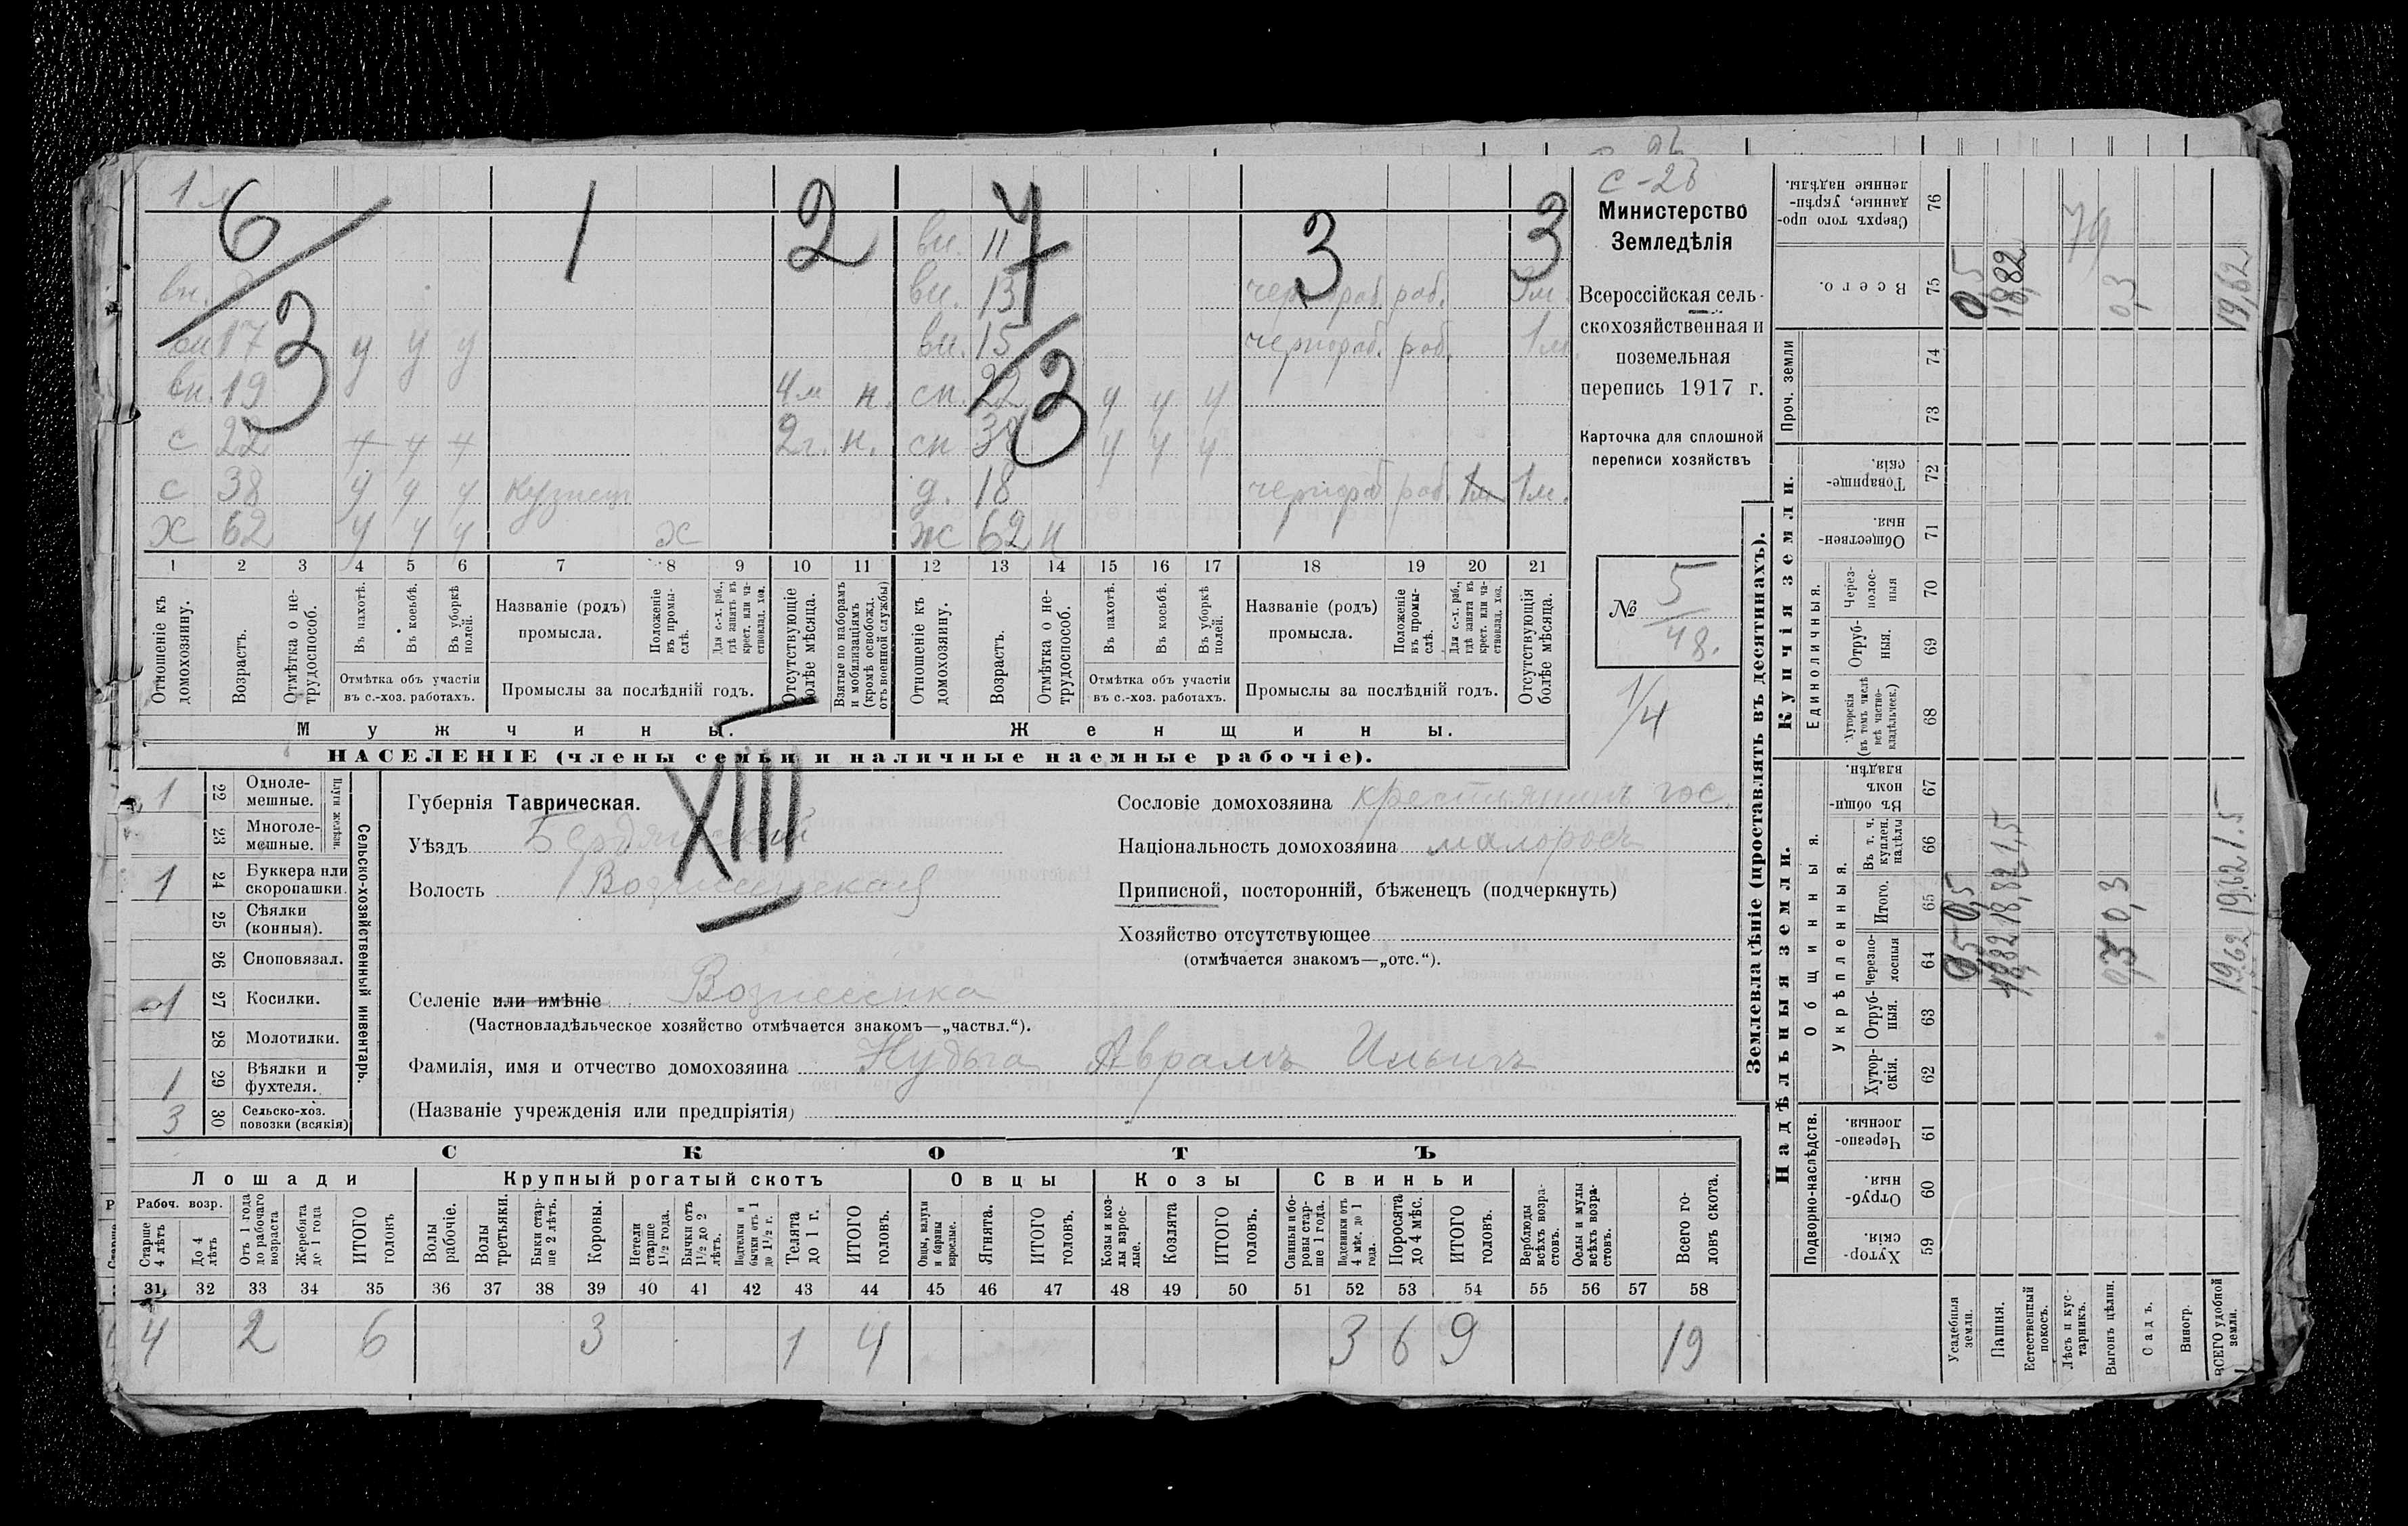 с-2в
Министерство
Земледѣлія
Всероссійская сель-
скохозяйственная и
поземельная
перепись 1917 г.
Карточка для сплошной
переписи хозяйствъ
№ 5/48.
1/4
6/3 1 2 7/3 3 3
вн. 11
вн. вн. 13 чернораб. раб. 1м.
вн 17 у у у вн. 15 чернораб. раб. 1м.
вн. 19 4м н. сн. 22 у у у
с 22 у у у 2г. н. сн 38 у у у
с 38 у у у кузнец д. 18 чернораб раб. 1м.
х 62 у у у х ж 62 н
1 2 3 4 5 6 7 8 9 10 11 12 13 14 15 16 17 18 19 20 21
Отношеніе къ домохозяину.
Возрастъ.
Отмѣтка о не-трудоспособ.
Въ пахотѣ.
Въ косьбѣ.
Въ уборкѣ полей.
Отмѣтка объ участіи въ с.-хоз. работахъ.
Названіе (родъ) промысла.
Положеніе въ промы-слѣ.
Для с.-х. раб., гдѣ занятъ въ крест. или ча-стновлад. хоз.
Промыслы за послѣдній годъ.
Отсутствующіе болѣе мѣсяца.
Взятые по наборамъ и мобилизаціямъ (кромѣ освобожд. отъ военной службы)
Отношеніе къ домохозяину.
Возрастъ.
Отмѣтка о не-трудоспособ.
Въ пахотѣ.
Въ косьбѣ.
Въ уборкѣ полей.
Отмѣтка объ участіи въ с.-хоз. работахъ.
Названіе (родъ) промысла.
Положеніе въ промы-слѣ.
Для с.-х. раб., гдѣ занята въ крест. или ча-стновлад. хоз.
Промыслы за послѣдній годъ.
Отсутствующія болѣе мѣсяца.
Мужчины. Женщины.
НАСЕЛЕНІЕ (члены семьи и наличные наемные рабочіе).
XIII
1 22 Одноле-мешные.
23 Многоле-мешные.
Плуги желѣзн.
1 24 Буккера или скоропашки.
25 Сѣялки (конныя).
26 Сноповязал.
1 27 Косилки.
28 Молотилки.
1 29 Вѣялки и фухтеля.
3 30 Сельско-хоз. повозки (всякія)
Сельско-хозяйственный инвентарь.
Губернія Таврическая.
Уѣздъ Бердянский
Волость Вознесенская
Селеніе или имѣніе Вознесенка
(Частновладѣльческое хозяйство отмѣчается знакомъ—„частвл.“).
Фамилія, имя и отчество домохозяина Нудьга Аврамъ Ильичъ
(Названіе учрежденія или предпріятія)
Сословіе домохозяина крестьянинъ гос.
Національность домохозяина малоросъ
Приписной, посторонній, бѣженецъ (подчеркнуть)
Хозяйство отсутствующее
(отмѣчается знакомъ—„отс.“).
СКОТЪ
Лошади Крупный рогатый скотъ Овцы Козы Свиньи
Рабоч. возр.
Старше 4 лѣтъ
До 4 лѣтъ
Отъ 1 года до рабочаго возраста
Жеребята до 1 года
ИТОГО головъ
Волы рабочіе.
Волы третьяки.
Быки стар-ше 2 лѣтъ.
Коровы.
Нетели старше 1½ года.
Бычки отъ 1½ до 2 лѣтъ.
Подтелки и бычки отъ 1 до 1½ г.
Телята до 1 г.
ИТОГО головъ.
Овцы, валухи и бараны взрослые.
Ягнята.
ИТОГО головъ.
Козы и коз-лы взрос-лые.
Козлята
ИТОГО головъ.
Свиньи и бо-ровы стар-ше 1 года.
Подсвинки отъ 4 мѣс. до 1 года.
Поросята до 4 мѣс.
ИТОГО головъ.
Верблюды всѣхъ возра-стовъ.
Ослы и мулы всѣхъ возра-стовъ.
Всего го-ловъ скота.
31 32 33 34 35 36 37 38 39 40 41 42 43 44 45 46 47 48 49 50 51 52 53 54 55 56 57 58
4 2 6 3 1 4 3 6 9 19
Землевладѣніе (проставлять въ десятинахъ).
Надѣльныя земли. Купчія земли.
Подворно-наслѣдств.
Общинныя.
Укрѣпленныя.
Единоличныя.
Проч. земли
Хутор-скія. 59
Отруб-ныя. 60
Черезпо-лосныя. 61
Хутор-скія. 62
Отруб-ныя. 63
Черезпо-лосныя 64
Итого. 65
Въ т. ч. куплен. надѣлы 66
Въ общи-номъ владѣн. 67
Хуторскія (въ томъ числѣ всѣ частно-владѣльческ.) 68
Отруб-ныя. 69
Через-полос-ныя 70
Обществен-ныя. 71
Товарище-скія. 72
73
74
Всего. 75
Сверхъ того про-данные, укрѣп-ленные надѣлы. 76
Усадебныя земли. 0,5 0,5 0,5
Пашня. 18,82 18,82 1,5 18,82
Естественный покосъ.
Лѣсъ и кус-тарникъ.
Выгонъ цѣлин. 0,3 0,3 0,3
Садъ.
Виногр.
ВСЕГО удобной земли. 19,62 19,62 1.5 19,62